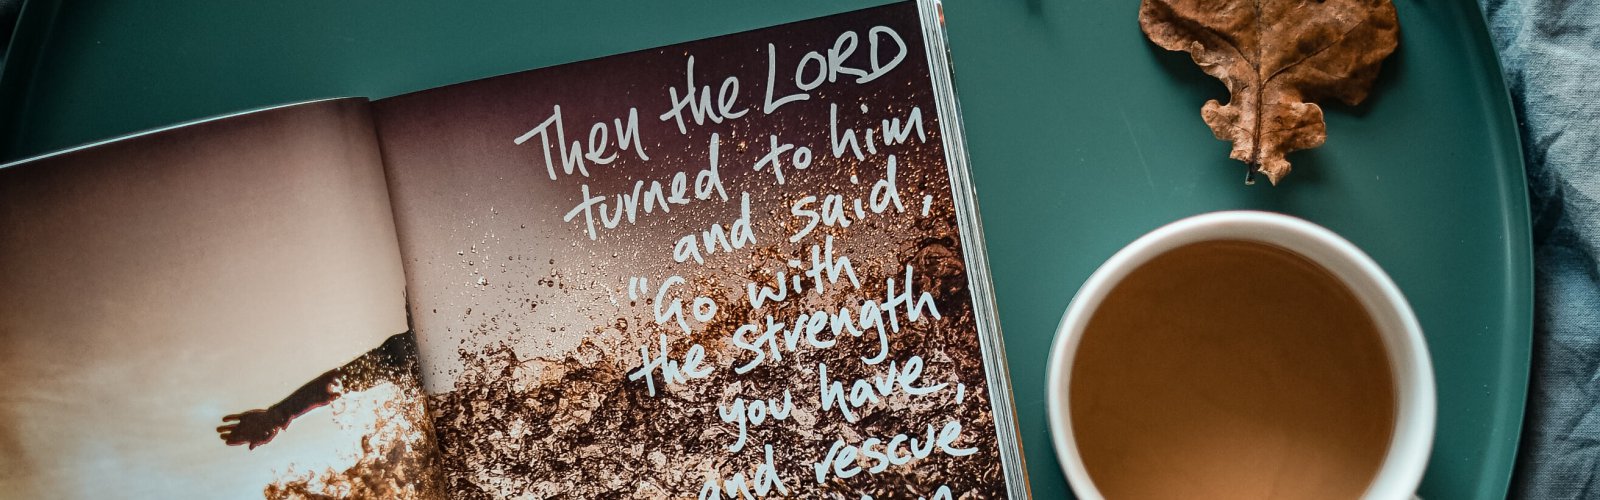 Then the LORD
turned to him
and said,
"Go with
the strength
you have,
and rescue